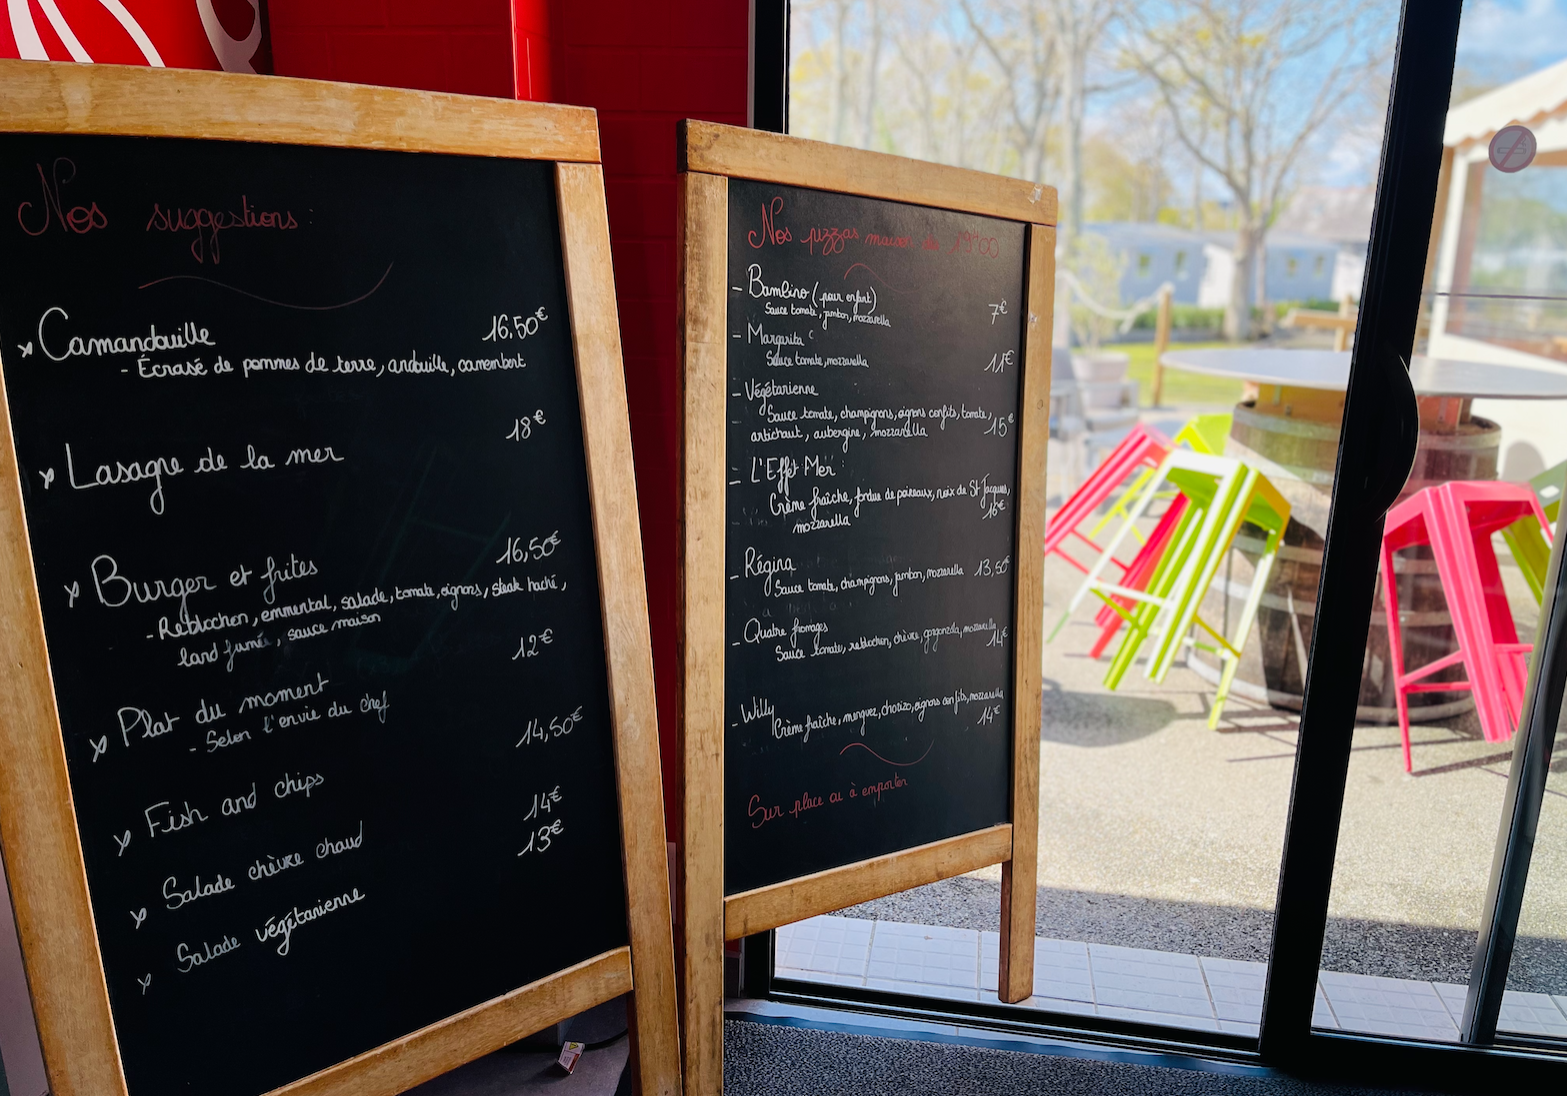 Nos suggestions :
Camandouille 16,50€
- Écrasé de pommes de terre, andouille, camembert
Lasagne de la mer 18€
Burger et frites 16,50€
- Reblochon, emmental, salade, tomate, oignons, steak haché,
lard fumé, sauce maison
Plat du moment 12€
- Selon l'envie du chef
Fish and chips 14,50€
Salade chèvre chaud 14€
Salade végétarienne 13€
Nos pizzas maison de 19h00
- Bambino (pour enfant) 7€
Sauce tomate, jambon, mozzarella
- Margarita 11€
Sauce tomate, mozzarella
- Végétarienne
Sauce tomate, champignons, oignons confits, tomate,
artichaut, aubergine, mozzarella 15€
- L'Effet Mer :
Crème fraîche, fondue de poireaux, noix de St Jacques,
mozzarella 16€
- Régina
Sauce tomate, champignons, jambon, mozzarella 13,50€
- Quatre fromages
Sauce tomate, reblochon, chèvre, gorgonzola, mozzarella 14€
- Willy
Crème fraîche, merguez, chorizo, oignons confits, mozzarella
14€
Sur place ou à emporter